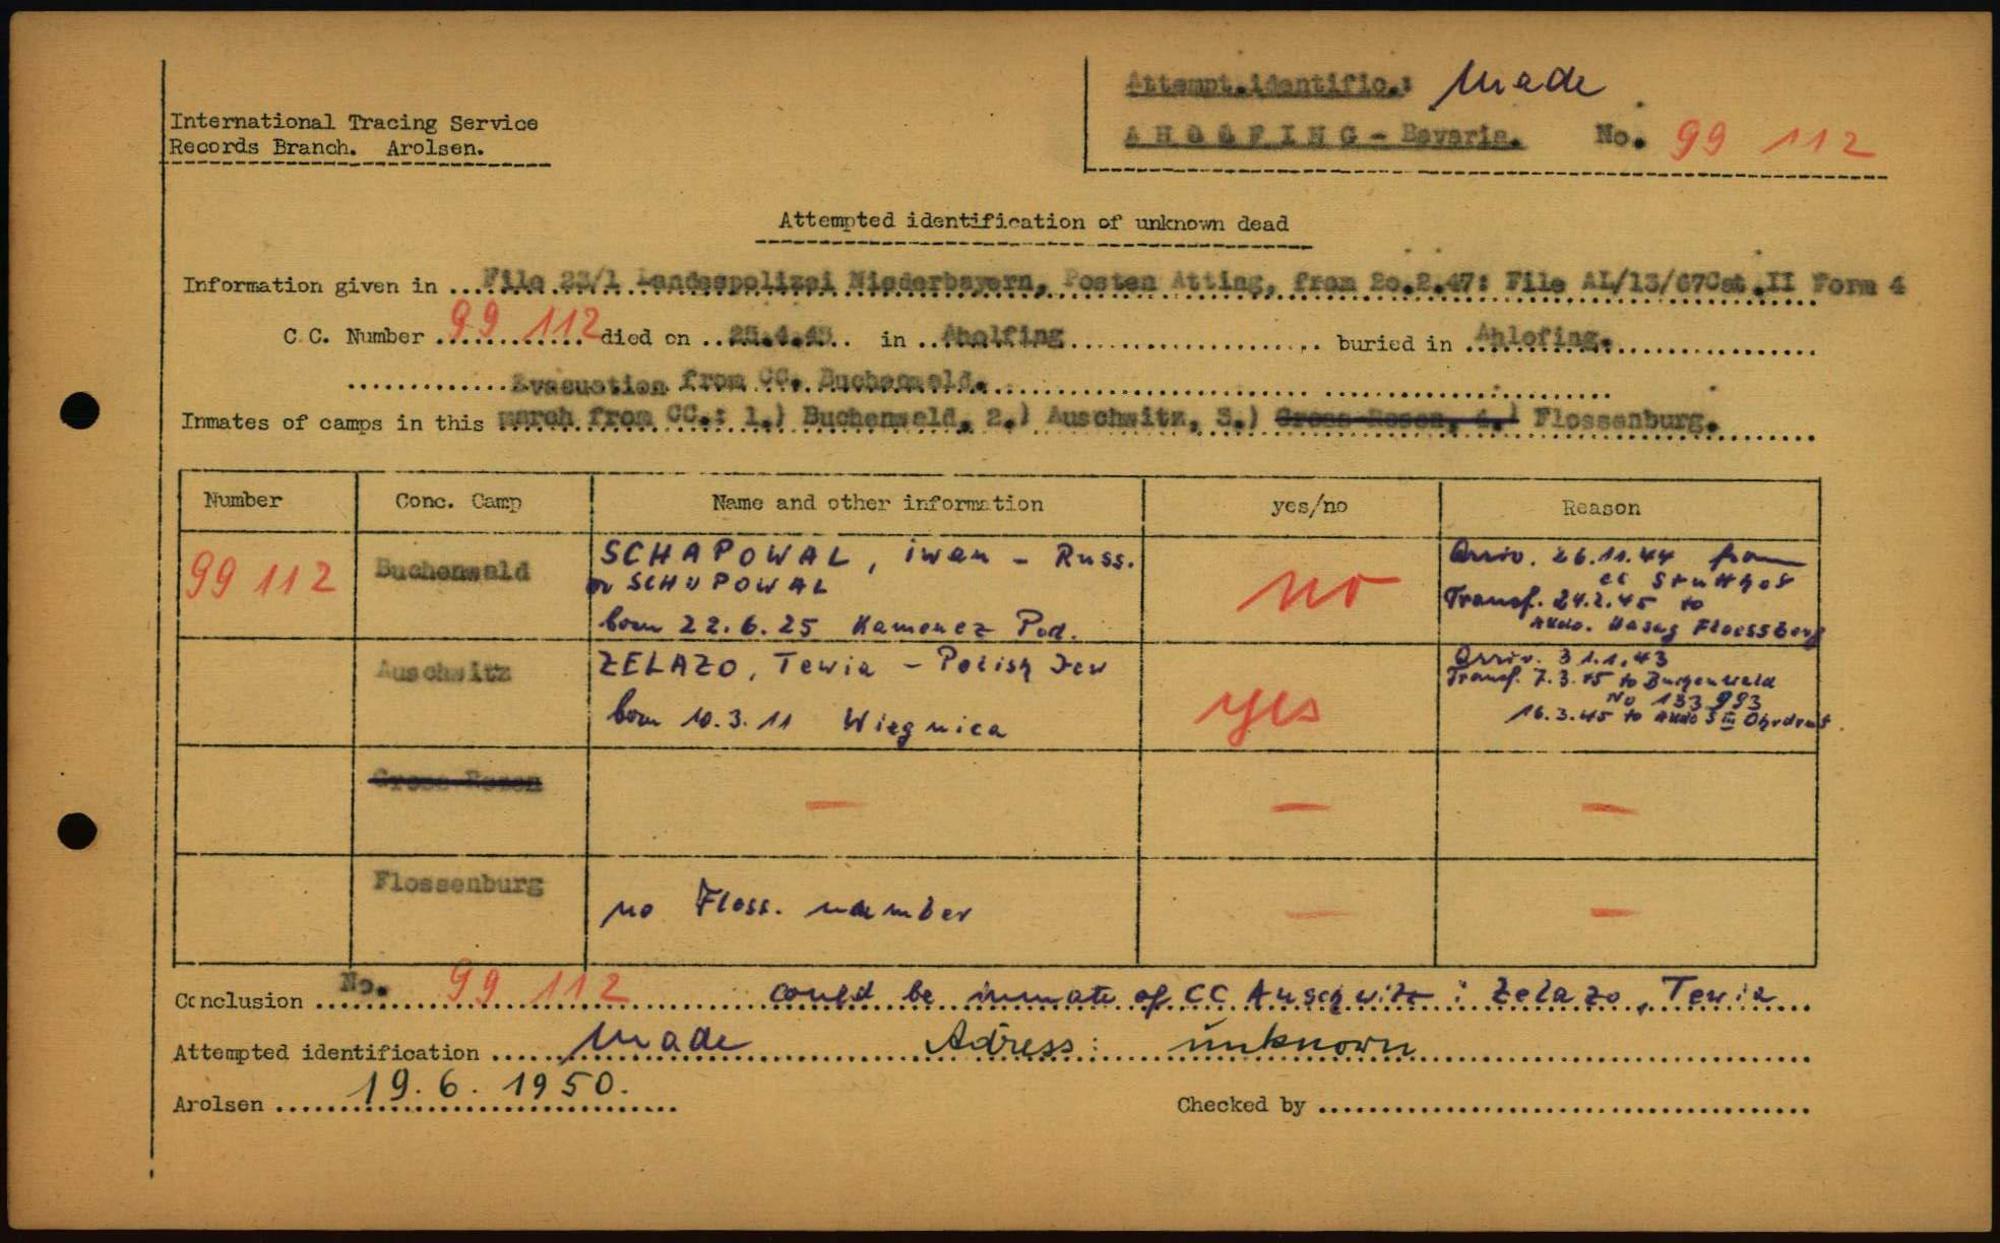 Attempt.identific.: Made
International Tracing Service
Records Branch. Arolsen.
AHOLFING - Bavaria. No. 99 112
Attempted identification of unknown dead
Information given in File 23/1 Landespolizei Niederbayern, Posten Atting, from 20.2.47: File AL/13/67Cat.II Form 4
C.C. Number 99 112 died on 25.4.45 in Aholfing buried in Ahlofing.
Evacuation from CC. Buchenwald.
Inmates of camps in this march from CC.: 1.) Buchenwald, 2.) Auschwitz, 3.) Gross-Rosen, 4.) Flossenburg.
Number Conc. Camp Name and other information yes/no Reason
99 112 Buchenwald SCHAPOWAL, iwan - Russ. no Arriv. 26.11.44 from
or SCHUPOWAL cc Stutthof
Transf. 24.2.45 to
born 22.6.25 Kamenez Pod. AKdo. Hasag Floessberg
Auschwitz ZELAZO, Tewia - Polish Jew yes Arriv. 31.1.43
Transf. 7.3.45 to Buchenwald
No 133 993
born 10.3.11 Wiegnica 16.3.45 to AKdo S III Ohrdruf.
Gross Rosen - - -
Flossenburg no Floss. number - -
Conclusion No. 99 112 could be inmate of CC Auschwitz: Zelazo, Tewia
Attempted identification Made Adress: unknown
Arolsen 19.6.1950. Checked by